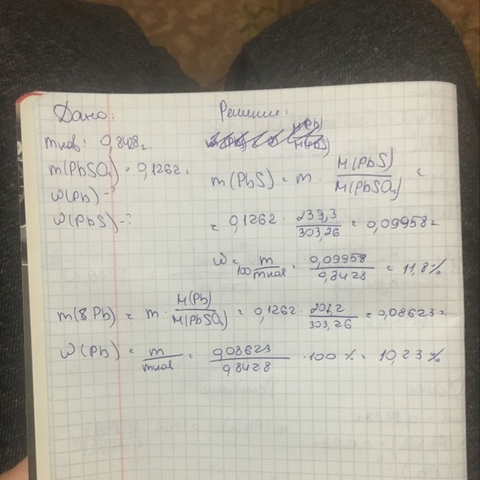 Дано:
mнав: 0,8428г
m(PbSO₄) = 0,1262г
ω(Pb) - ?
ω(PbS) - ?
Решение:
m(PbS) = m · M(PbS) / M(PbSO₄) =
= 0,1262 · 239,3 / 303,26 = 0,09958г
ω = 100 m / mнав = 0,09958 / 0,8428 = 11,8%
m(Pb) = m · M(Pb) / M(PbSO₄) = 0,1262 · 207,2 / 303,26 = 0,08623г
ω(Pb) = m / mнав = 0,08623 / 0,8428 · 100 % = 10,23 %